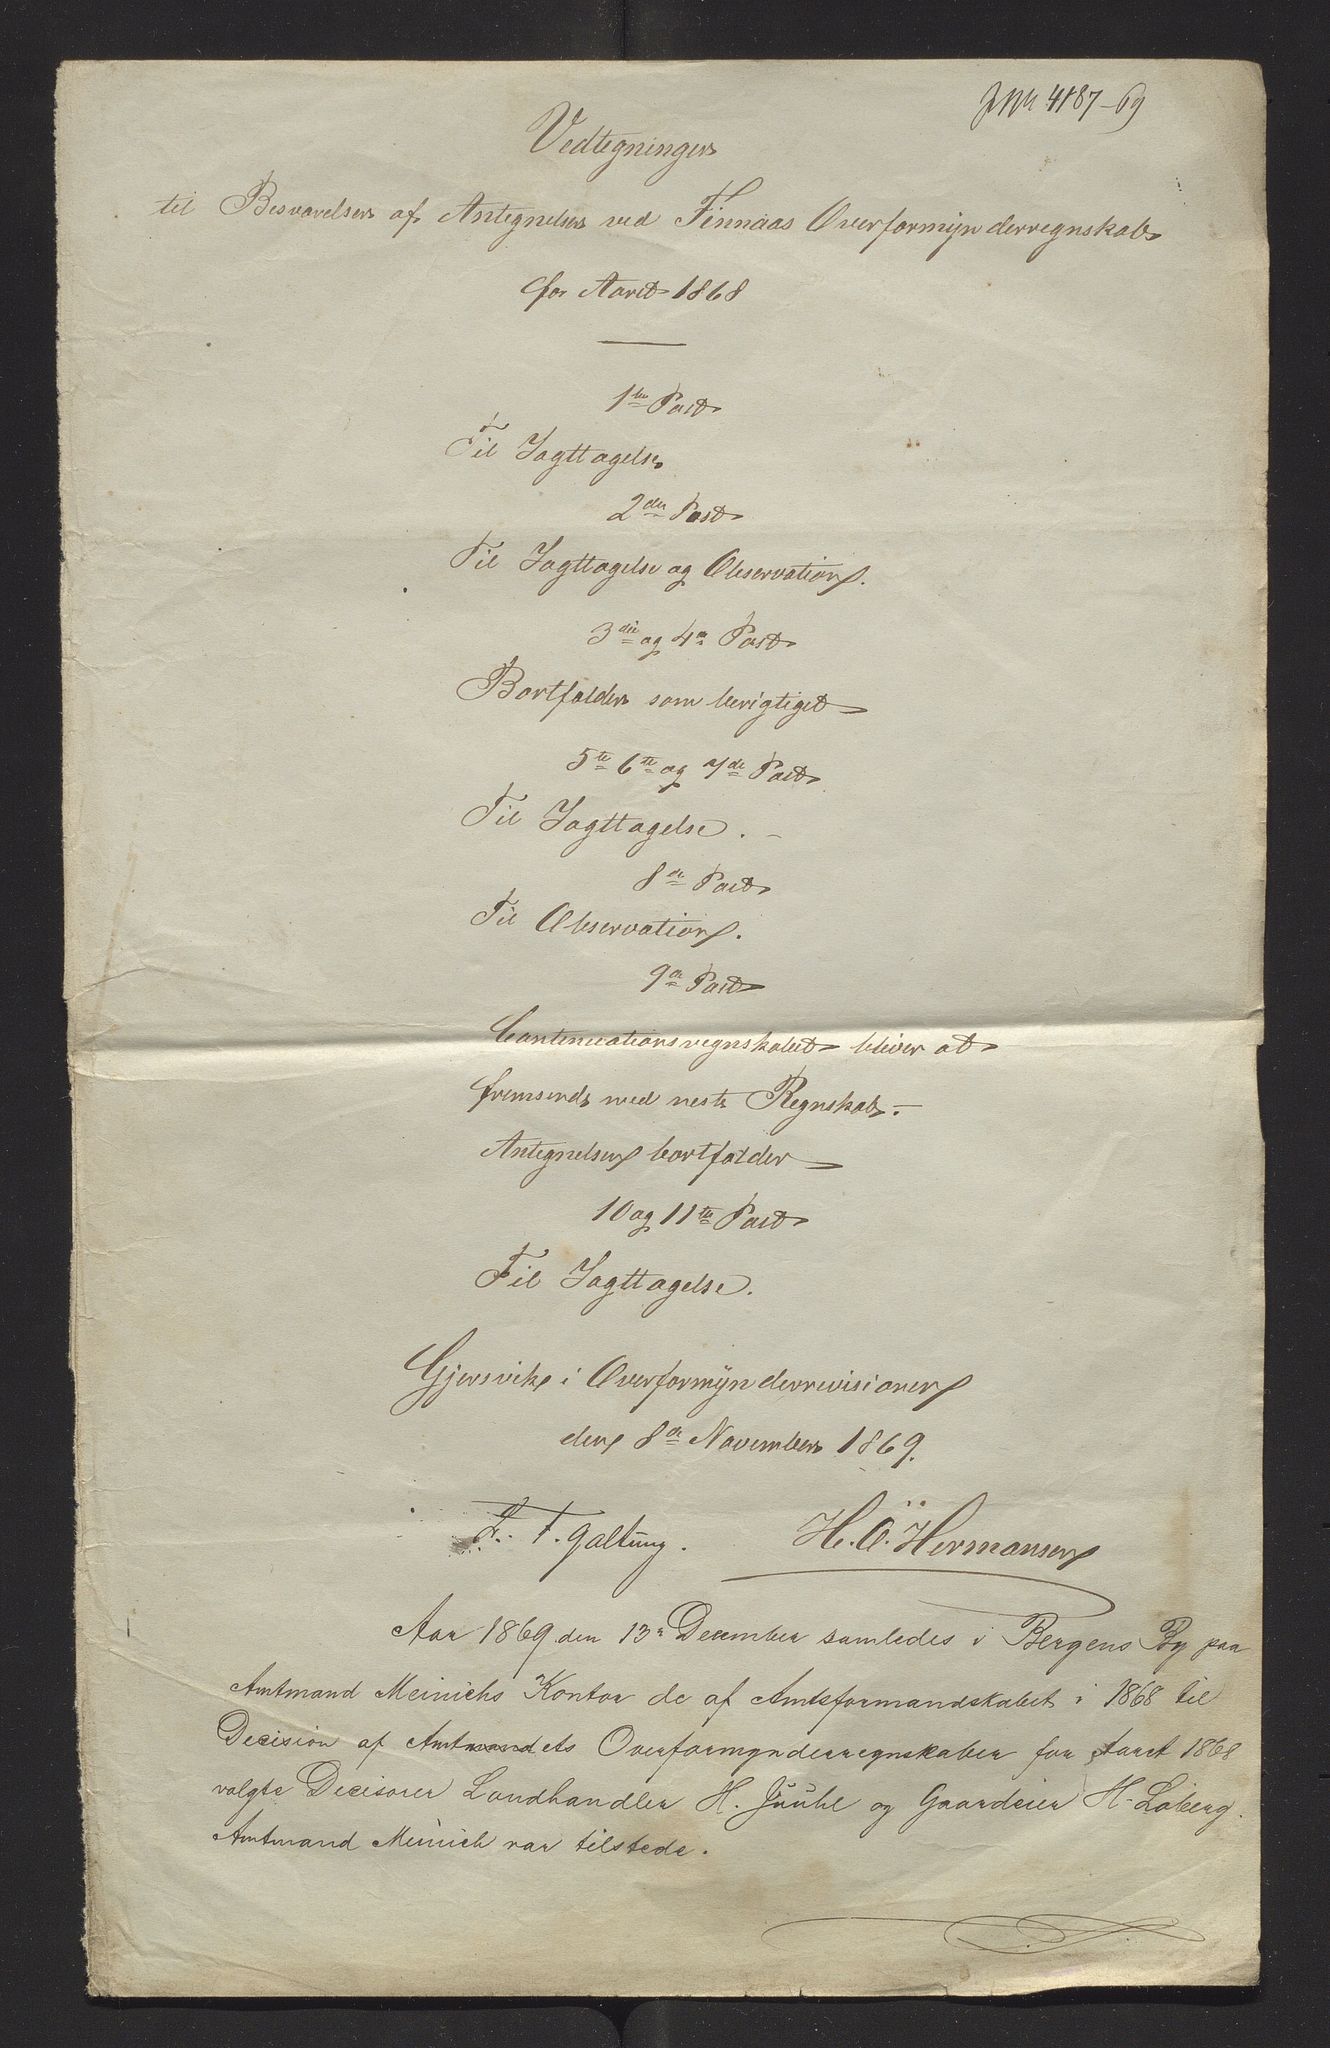 JNr 4187-69
Vedtegninger
til Besvarelser af Antegnelser ved Finnaas Overformynderregnskab
for Aaret 1868
1ste Post
Til Jagttagelse
2den Post
Til Jagttagelse og Observation.
3die og 4de Post
Bortfalder som berigtiget
5te 6te og 7de Post
Til Jagttagelse. -
8de Post
Til Observation.
9de Post
Continuationsregnskabet bliver at
fremsende med neste Regnskab. -
Antegnelsen bortfalder
10 og 11te Post
Til Jagttagelse.
Gjersvik i Overformynderrevisionen
den 8de November 1869.
F. T. Galtung. H. O. Hermansen
Aar 1869 den 13de December samledes i Bergens By paa
Amtmand Meinichs Kontor de af Amtsformandskabet i 1868 til
Decision af Amtmandets Overformynderregnskaber for Aaret 1868
valgte Decisorer Landhandler H. Juuhl og Gaardeier H. Loberg.
Amtmand Meinich var tilstede.